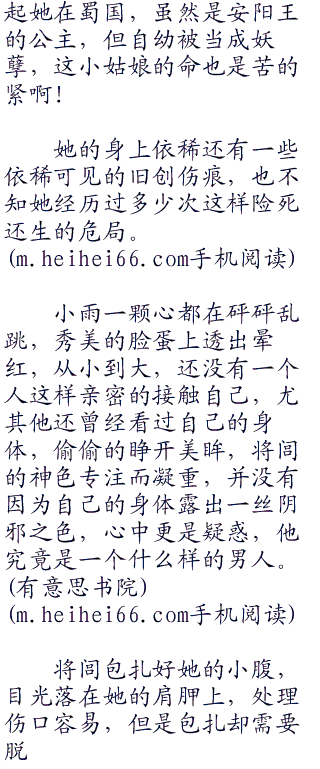 起她在蜀国，虽然是安阳王
的公主，但自幼被当成妖
孽，这小姑娘的命也是苦的
紧啊！
她的身上依稀还有一些
依稀可见的旧创伤痕，也不
知她经历过多少次这样险死
还生的危局。
(m.heihei66.com手机阅读)
小雨一颗心都在砰砰乱
跳，秀美的脸蛋上透出晕
红，从小到大，还没有一个
人这样亲密的接触自己，尤
其他还曾经看过自己的身
体，偷偷的睁开美眸，将闾
的神色专注而凝重，并没有
因为自己的身体露出一丝阴
邪之色，心中更是疑惑，他
究竟是一个什么样的男人。
(有意思书院)
(m.heihei66.com手机阅读)
将闾包扎好她的小腹，
目光落在她的肩胛上，处理
伤口容易，但是包扎却需要
脱